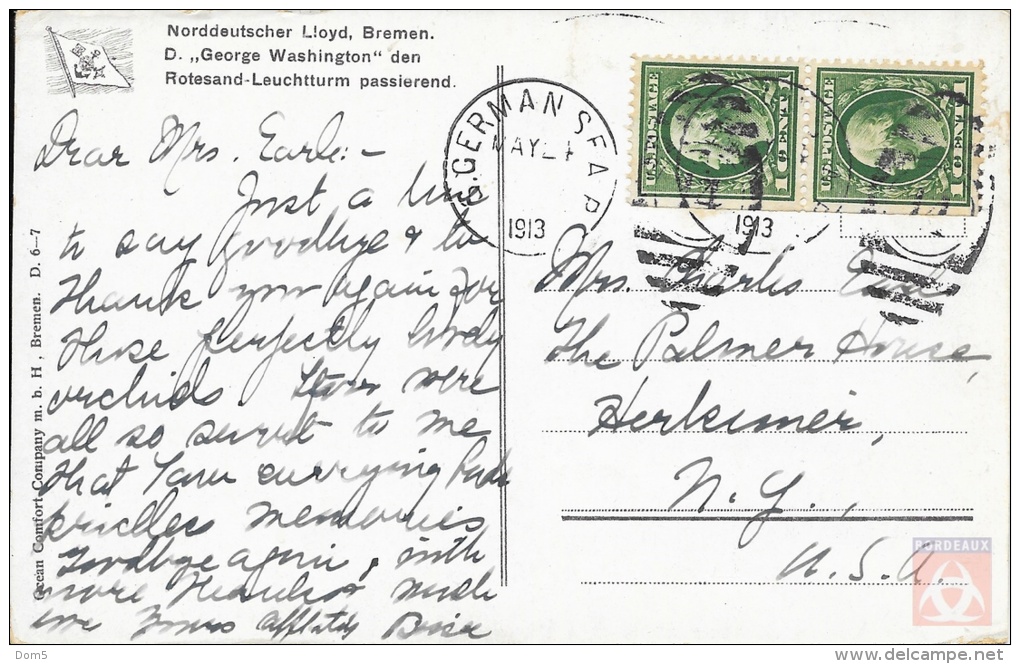 Norddeutscher Lloyd, Bremen.
D. „George Washington" den
Rotesand-Leuchtturm passierend.
Dear Mrs. Earle:-
Just a line
to say goodbye & to
thank you again for
those perfectly lovely
orchids. You were
all so sweet to me
that I am carrying back
priceless memories
Goodbye again, with
more thanks & much
love Yours
Ocean Comfort Company m. b. H, Bremen. D. 6—7
GERMAN SEA P
MAY
1913
1913
U.S. POSTAGE
1 CENT 1
U.S. POSTAGE
1 CENT 1
Mrs. Charles Earle
The Palmer House,
Herkimer,
N. Y.,
U. S. A.
BORDEAUX
Dom5
delcampe.net